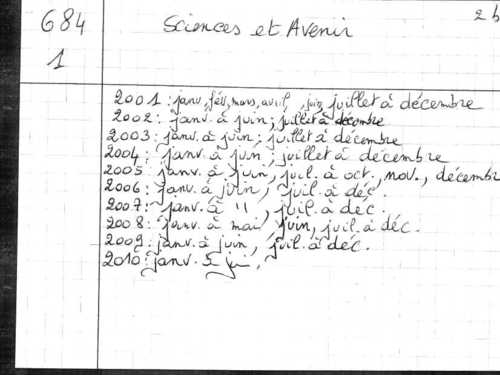 684 Sciences et Avenir 2 b
1
2001 : janv, fév, mars, avril, juin, juillet à décembre
2002 : janv. à juin ; juillet à décembre
2003 : janv. à juin ; juillet à décembre
2004 : janv. à juin ; juillet à décembre
2005 janv. à juin, juil. à oct., nov., décembre
2006 : janv. à juin, juil. à déc.
2007 : janv. à ", juil. à déc.
2008 : janv. à mai, juin, juil. à déc.
2009 : janv. à juin, juil. à déc.
2010 : janv.